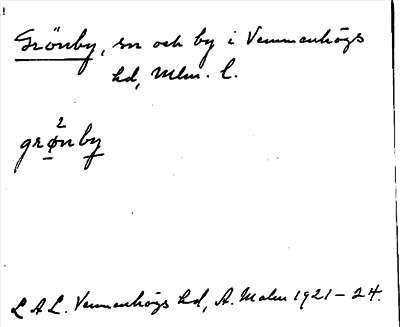 Grönby, sn och by i Vemmenhögs
hd, Mlm. l.
2
grønby
L A L. Vemmenhögs hd, A. Malm 1921-24.